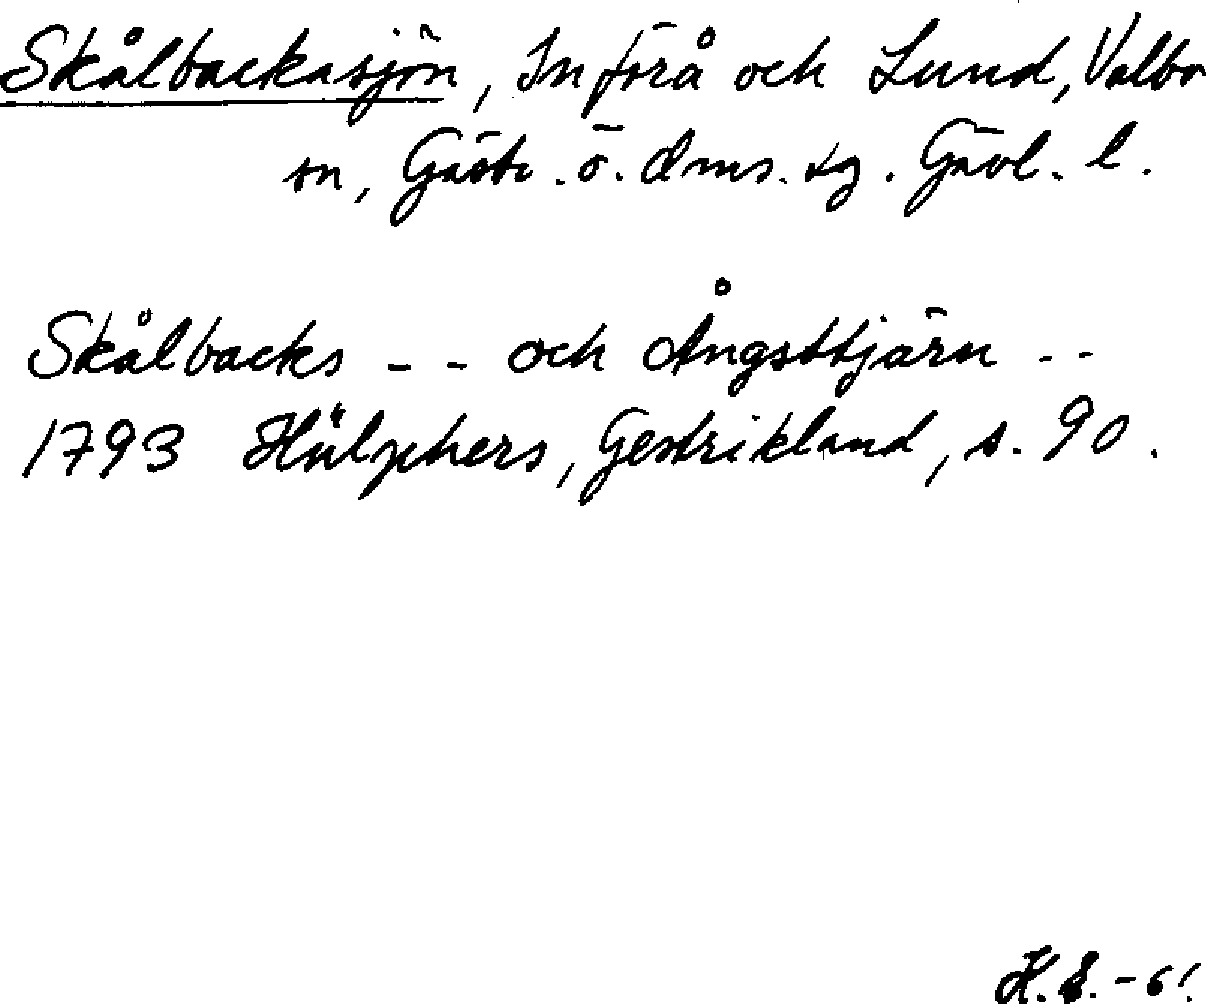 Skålbackasjön, Införå och Lund, Valbo
sn, Gästr. ö. dms. tg. Gävl. l.
Skålbacks - - och Ångsttjärn - -
1793 Hülphers, Gestrikland, s. 90.
H. S. - 61